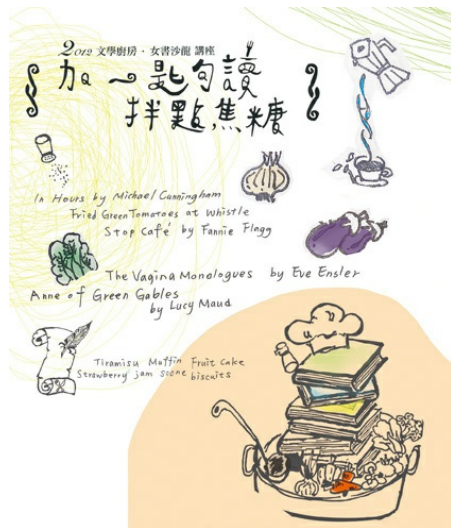 2012 文學廚房・女書沙龍 講座
加一匙句讀
拌點焦糖
In Hours by Michael Cunningham
Fried Green Tomatoes at Whistle
Stop Café by Fannie Flagg
The Vagina Monologues by Eve Ensler
Anne of Green Gables
by Lucy Maud
Tiramisu Muffin Fruit Cake
Strawberry jam scone biscuits